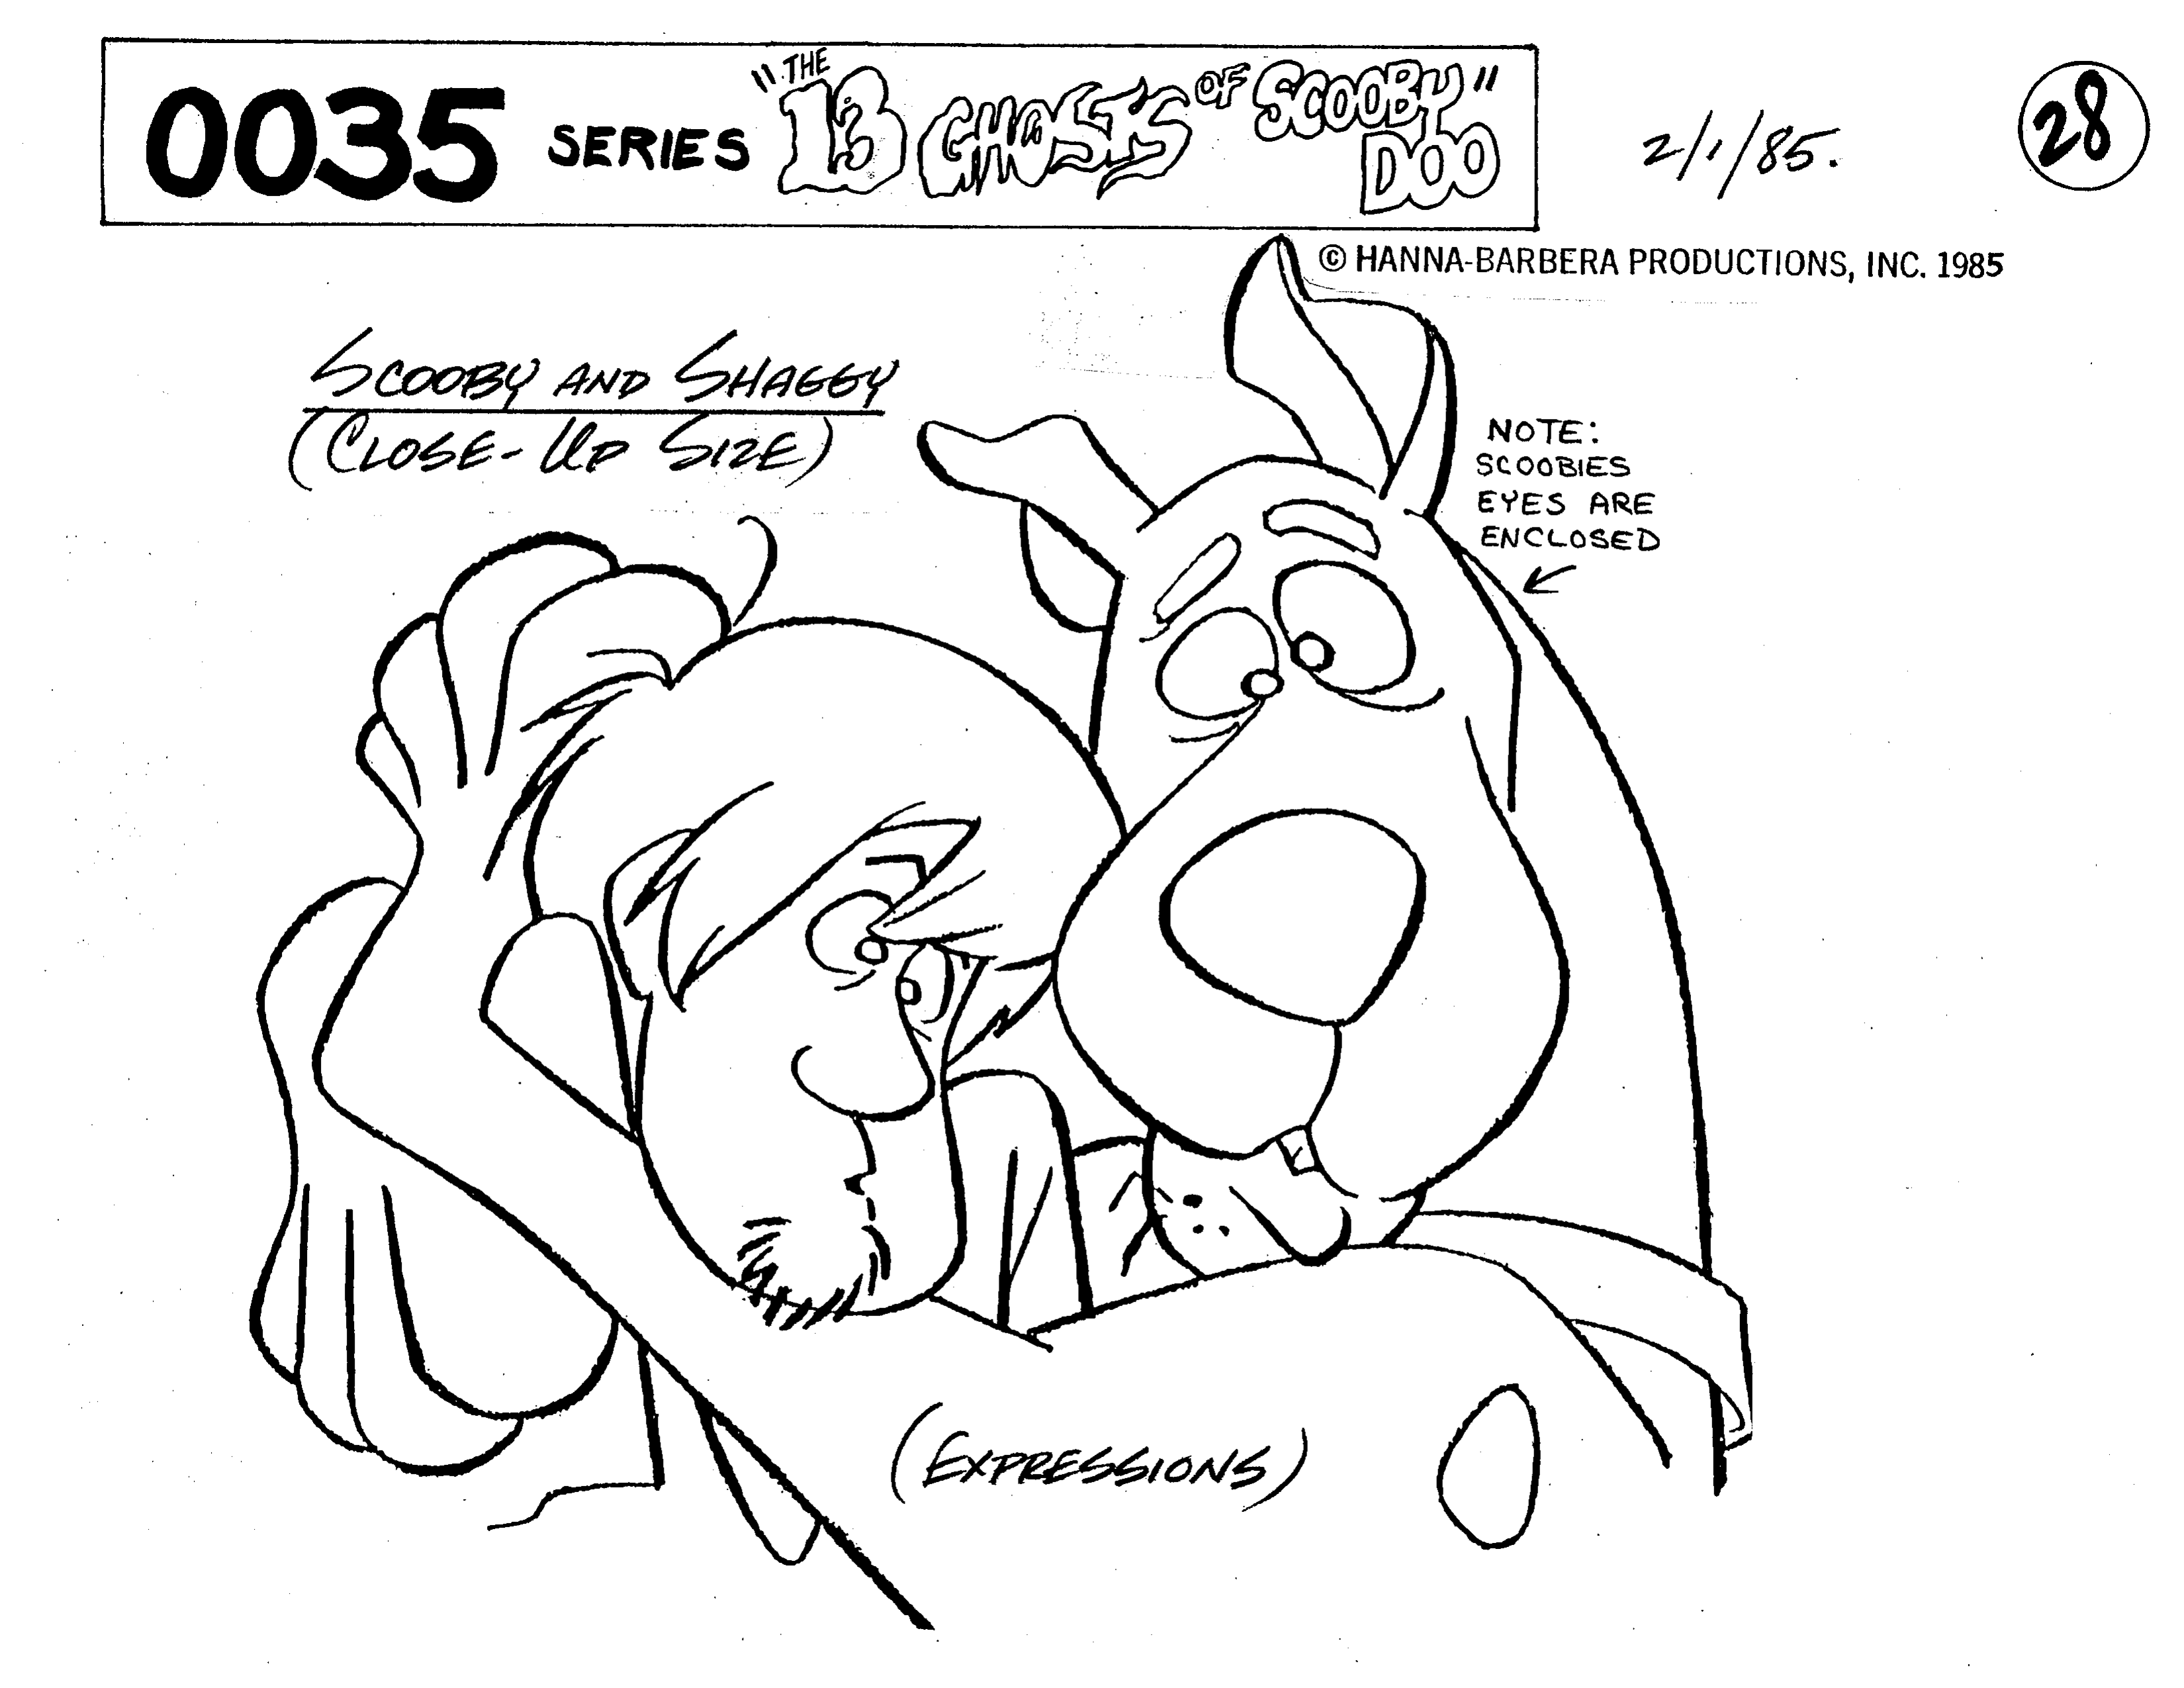 0035 SERIES "THE 13 GHOSTS OF SCOOBY DOO"
2/1/85.
28
© HANNA-BARBERA PRODUCTIONS, INC. 1985
SCOOBY AND SHAGGY
(CLOSE-UP SIZE)
NOTE:
SCOOBIES
EYES ARE
ENCLOSED
(EXPRESSIONS)